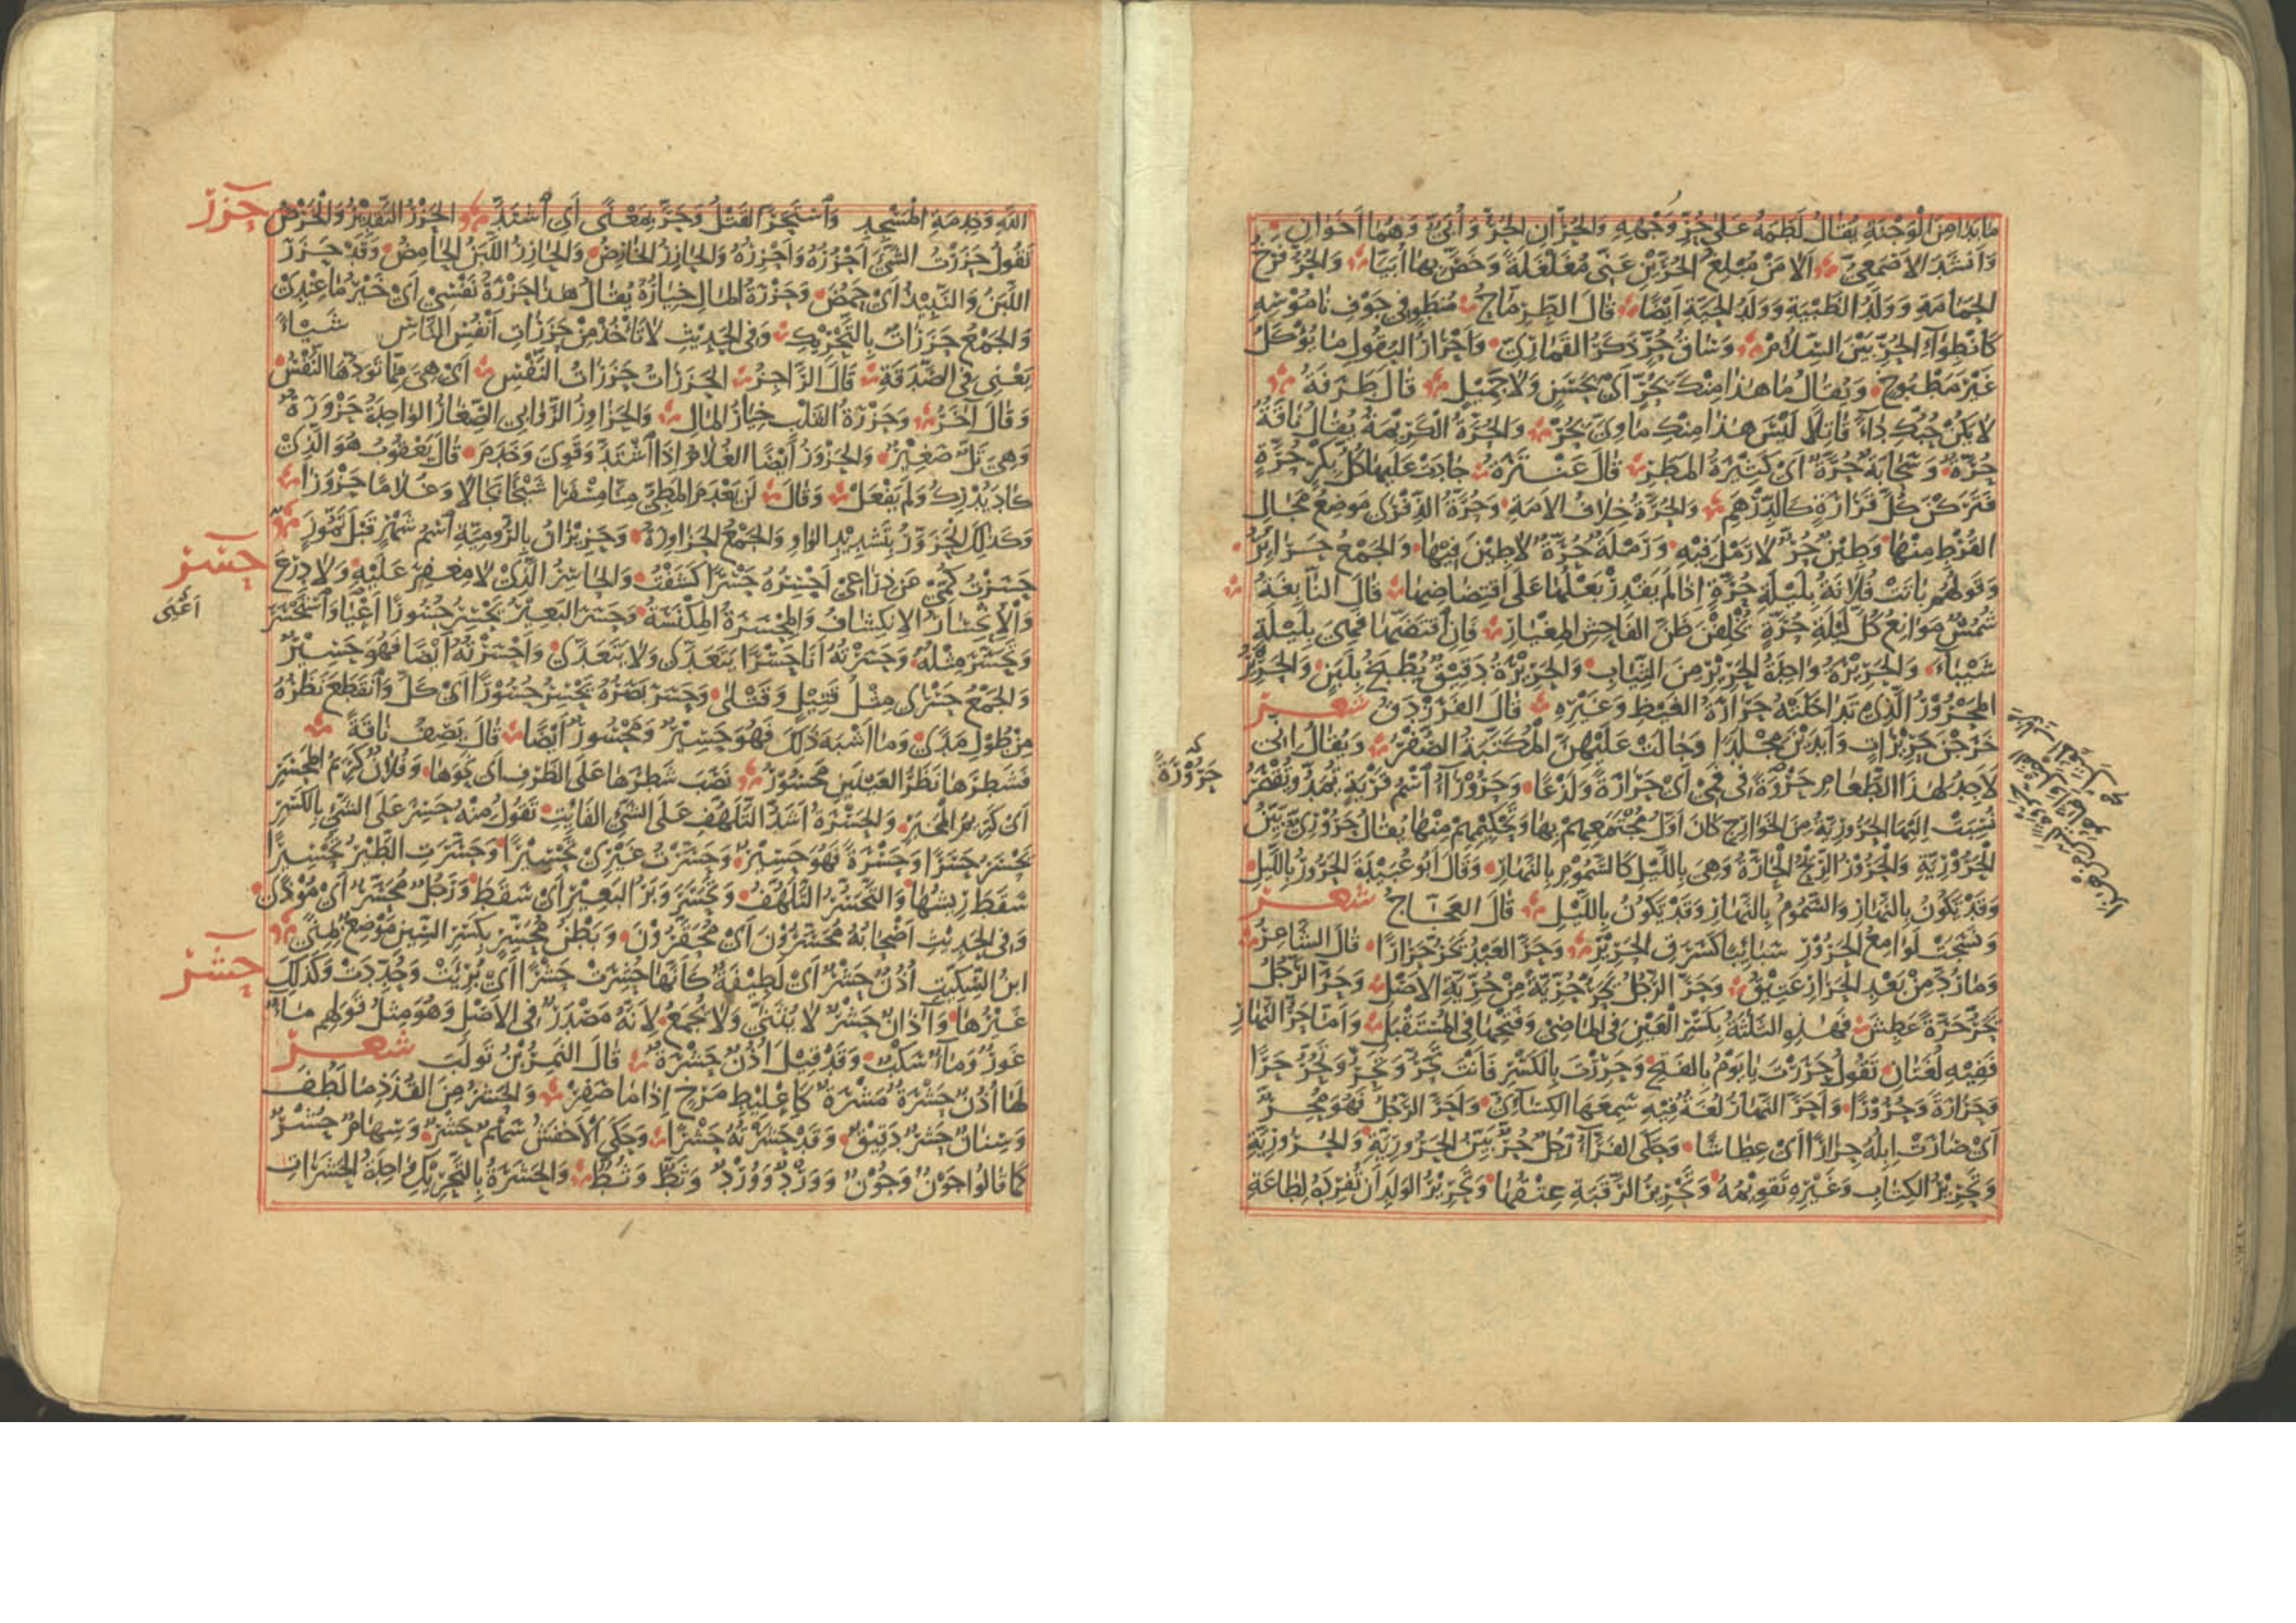 ما بدا من الوجنة يقال لطمه على حر وجهه والحران الحر وأبى وهما اخوان
وانشد الاصمعي الا من مبلغ الحرين عنى مغلغلة وخص بها أبيا والحر فرخ
الحمامة وولد الظبية وولد الحية ايضا قال الطرماح منطو فى جوف ناموسه
كانطواء الحر بين السلام وساق حر ذكر القمارى واحرار البقول ما يؤكل
غير مطبوخ ويقال ما هذا منك بحر أى بحسن ولا جميل قال طرفة
لا يكن حبك داء قاتلا ليس هذا منك ماوى بحر والحرة الكريمة يقال ناقة
حرة وسحابة حرة اى كثيرة المطر قال عنترة جادت عليها كل بكر حرة
فتركن كل قرارة كالدرهم والحرة خلاف الامة وحرة الذفرى موضع مجال
القرط منها وطين حر لا رمل فيه ورملة حرة لا طين فيها والجمع حرائر
وقولهم باتت فلانة بليلة حرة اذا لم يقدر بعلها على اقتضاضها قال النابغة
شمس موانع كل ليلة حرة يخلفن ظن الفاحش المغيار فان اقتضها فهى بليلة
شيباء والحريرة واحدة الحرير من الثياب والحريرة دقيق يطبخ بلبن والحرير
المحرور الذى تداخلته حرارة الغيظ وغيره قال الفرزدق شعر
خرجن حريرات وابدين مجلدا وجالت عليهن المكتبة الصفر ويقال انى
لاجد لهذا الطعام حروة فى فمى اى حرارة ولذعا وحروراء اسم قرية يمد ويقصر
حرورة
نسبت اليها الحرورية من الخوارج كان اول مجتمعهم بها وتحكيمهم منها يقال حرورى بين
الحرورية والحرور الريح الحارة وهى بالليل كالسموم بالنهار وقال ابو عبيدة الحرور بالليل
وقد تكون بالنهار والسموم بالنهار وقد تكون بالليل قال العجاج شعر
ونسجت لوامع الحرور سبائبا كسرق الحرير وحر العبد يحر حرارا قال الشاعر
وما رد من بعد الحرار عتيق وحر الرجل يحر حرية من حرية الاصل وحر الرجل
يحر حرة عطش فهذه الثلثة بكسر العين فى الماضى وفتحها فى المستقبل واما حر النهار
ففيه لغتان تقول حررت يا يوم بالفتح وحررت بالكسر فانت تحر وتحر وتحر حرا
وحرارة وحرورا واحر النهار لغة فيه سمعها الكسائى واحر الرجل فهو محر
اى صارت ابله حرارا اى عطاشا وحكى الفراء رجل حر بين الحرورية والحرورية
وتحرير الكتاب وغيره تقويمه وتحرير الرقبة عتقها وتحرير الولد ان تفرده لطاعة
الله وخدمة المسجد واستحر القتل وحر بمعنى اى اشتد والحزر التقدير والخرص
حزر
تقول حزرت الشئ احزره واحزره والحازر الخارص والحازر اللبن الحامض وقد حزر
اللبن والنبيذ اى حمض وحزرة المال خياره يقال هذا حزرة نفسى اى خير ما عندى
والجمع حزرات بالتحريك وفى الحديث لا تاخذ من حزرات انفس الناس شيئا
يعنى فى الصدقة قال الراجز الحزرات حزرات النفس اى هى مما تودها النفس
وقال آخر وحزرة القلب خيار المال والحزاور الروابى الصغار الواحدة حزورة
وهى تل صغير والحزور ايضا الغلام اذا اشتد وقوى وخدم قال يعقوب هو الذى
كاد يدرك ولم يفعل وقال لن يعدم المطى منا مسفرا شيخا بجالا وغلاما حزورا
وكذلك الحزور بتشديد الواو والجمع الحزاورة وحزيران بالرومية اسم شهر قبل تموز
حسر
حسرت كمى عن ذراعى احسره حسرا كشفت والحاسر الذى لا مغفر عليه ولا درع
والانحسار الانكشاف والمحسرة المكنسة وحسر البعير يحسر حسورا اعيا واستحسر
اعيى
وتحسر مثله وحسرته انا حسرا يتعدى ولا يتعدى واحسرته ايضا فهو حسير
والجمع حسرى مثل قتيل وقتلى وحسر بصره يحسر حسورا اى كل وانقطع نظره
من طول مدى وما اشبه ذلك فهو حسير ومحسور ايضا قال يصف ناقة
فشطرها نظر العينين محسور نصب شطرها على الظرف اى نحوها وفلان كريم المحسر
اى كريم المخبر والحسرة اشد التلهف على الشئ الفائت تقول منه حسر على الشئ بالكسر
يحسر حسرا وحسرة فهو حسير وحسرت غيرى تحسيرا وحسرت الطير تحسيرا
سقط ريشها والتحسر التلهف وتحسر وبر البعير اى سقط ورجل محسر اى موذى
وفى الحديث اصحابه محسرون اى محقرون وبطن محسر بكسر السين موضع بمنى
حشر
ابن السكيت اذن حشر اى لطيفة كانها حشرت حشرا اى بريت وحددت وكذلك
غيرها وآذان حشر لا يثنى ولا يجمع لانه مصدر فى الاصل وهو مثل قولهم ماء
غور وماء سكب وقد قيل اذن حشرة قال النمر بن تولب شعر
لها اذن حشرة مشرة كاعليط مرخ اذا ما صفر والحشر من القذذ ما لطف
وسنان حشر دقيق وقد حشرته حشرا وحكى الاخفش سهم حشر وسهام حشر
كما قالوا جون وجون وورد وورد وثط وثط والحشرة بالتحريك واحدة الحشرات